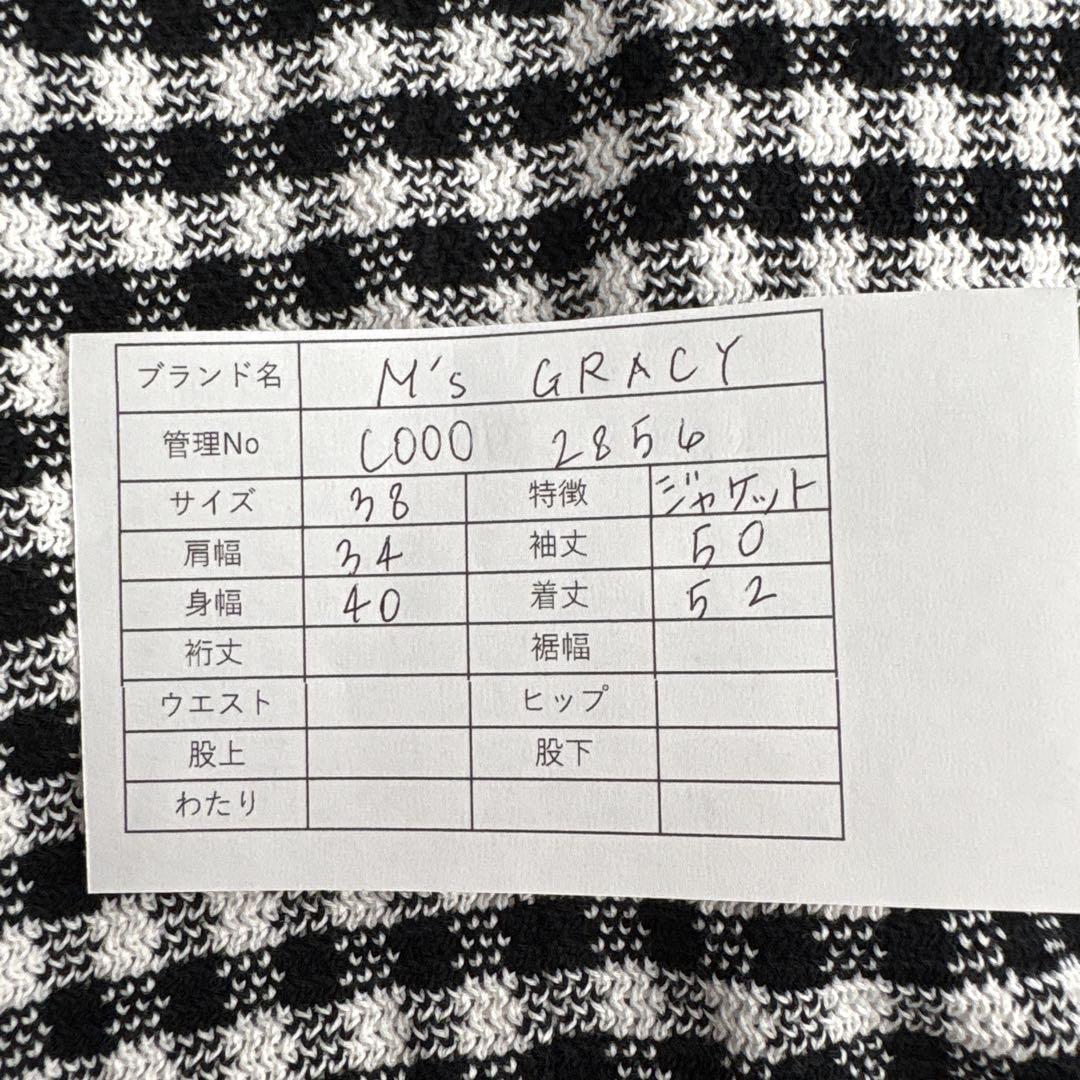 ブランド名 M's GRACY
管理No C000 2856
サイズ 38 特徴 ジャケット
肩幅 34 袖丈 50
身幅 40 着丈 52
裄丈 裾幅
ウエスト ヒップ
股上 股下
わたり